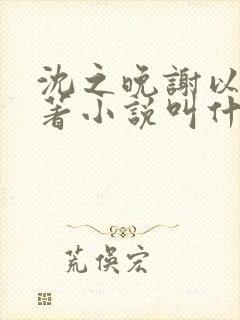 沈之晚謝以
著小説叫什
荒俁宏